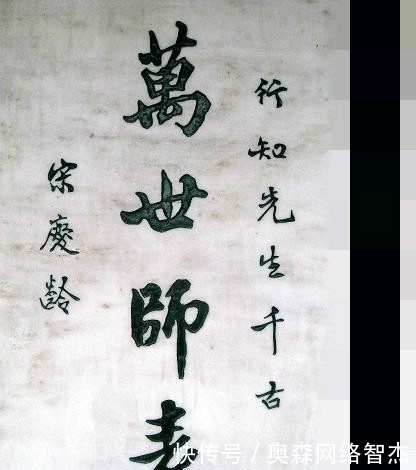 行知先生千古
萬世師表
宋慶齡
快传号/奥森网络智杰